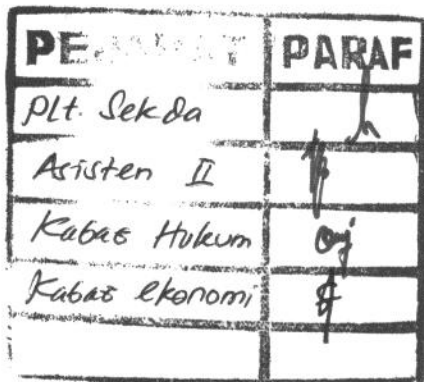 PEJABAT PARAF
Plt. Sekda
Asisten II
Kabag Hukum
Kabag ekonomi